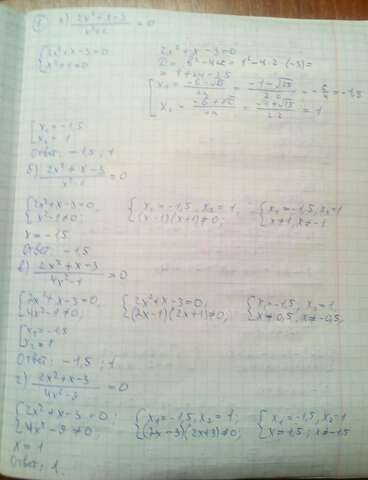 а) (2x²+x-3)/(x²+1) = 0
{2x²+x-3=0
2x²+x-3=0
D = b²-4ac = 1²-4·2·(-3)=
= 1+24=25
x₁ = (-b-√D)/2a = (-1-√25)/2·2 = -6/4 = -1,5
x₂ = (-b+√D)/2a = (-1+√25)/2·2 = 1
[x₁ = -1,5
x₂ = 1
Ответ: -1,5 ; 1
б) (2x²+x-3)/(x²-1) = 0
{2x²+x-3=0, {x₁=-1,5, x₂=1, {x₁=-1,5, x₂=1
x²-1≠0; (x-1)(x+1)≠0; x≠1, x≠-1
x=-1,5
Ответ: -1,5
в) (2x²+x-3)/(4x²-1) = 0
{2x²+x-3=0, {2x²+x-3=0; {x₁=-1,5, x₂=1,
4x²-1≠0; (2x-1)(2x+1)≠0; x≠0,5, x≠-0,5,
x₁=-1,5
x₂=1
Ответ: -1,5 ; 1
г) (2x²+x-3)/(4x²-9) = 0
{2x²+x-3=0; {x₁=-1,5, x₂=1; {x₁=-1,5, x₂=1
4x²-9≠0; (2x-3)(2x+3)≠0; x≠1,5; x≠-1,5
x=1
Ответ: 1